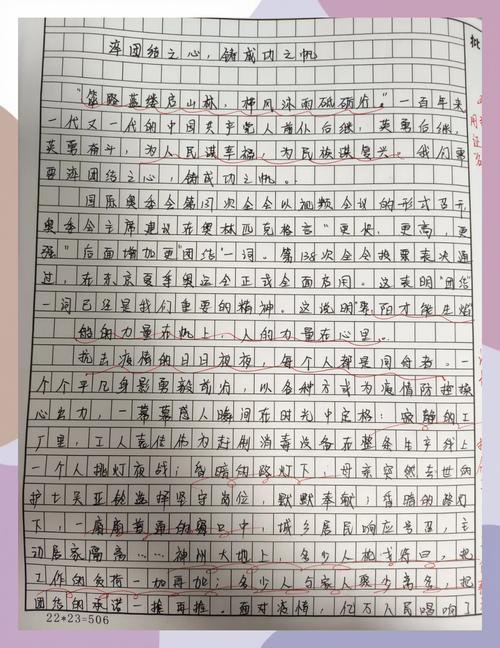 率团结之心，铸成功之帆
"筚路蓝缕启山林，栉风沐雨砥砺行。"一百年来
一代又一代的中国共产党人前仆后继，英勇后继，
英勇奋斗，为人民谋幸福，为民族谋复兴。我们
要率团结之心，铸成功之帆。
国际奥委会第137次全会以视频会议的形式召开
奥委会主席建议在奥林匹克格言"更快，更高，更
强"后面增加更"团结"一词。第138次全会投票表决通
过，在东京夏季奥运会正式全面启用。这表明"团结"
一词已经是我们重要的精神。这说明
的力量在机上，人的力量在心里。
抗击疫情的日日夜夜，每个人都是同舟者。一
个个平凡身影勇毅前行，以各种方式为疫情防控操
心出力，一幕幕感人瞬间在时光中定格：寂静的工
厂里，工人袁佳伟为赶制消毒设备在整条生产线上
一个人挑灯夜战；昏暗的路灯下，母亲突然去世的
护士吴亚玲选择坚守岗位，默默奉献；昏暗的路灯
下，一扇扇普通的窗口中，城乡居民响应号召，主
动居家隔离……神州大地上，多少人枕戈待旦，把
工作的负荷一加再加；多少人与家人聚少离多，把
团结的承诺一推再推。面对疫情，亿万人民唱响了
22*23=506
批